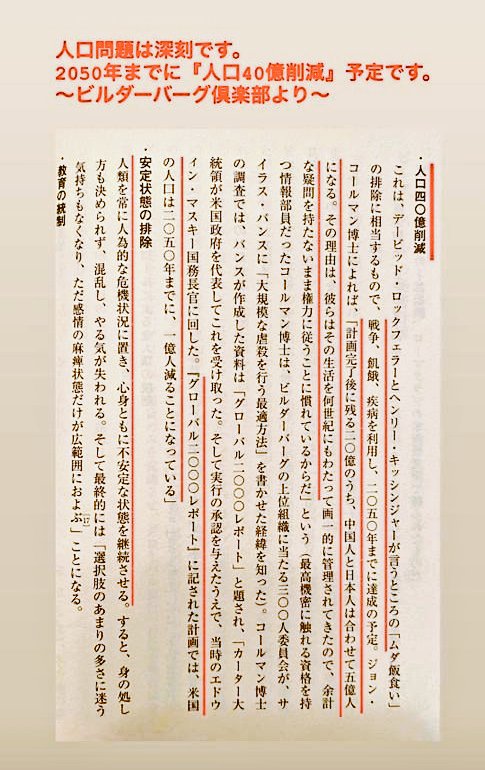 人口問題は深刻です。
2050年までに『人口40億削減』予定です。
〜ビルダーバーグ倶楽部より〜
・人口四〇億削減
これは、デービッド・ロックフェラーとヘンリー・キッシンジャーが言うところの「ムダ飯食い」
の排除に相当するもので、戦争、飢餓、疾病を利用し、二〇五〇年までに達成の予定。ジョン・
コールマン博士によれば、「計画完了後に残る二〇億のうち、中国人と日本人は合わせて五億人
になる。その理由は、彼らはその生活を何世紀にもわたって画一的に管理されてきたので、余計
な疑問を持たないまま権力に従うことに慣れているからだ」という（最高機密に触れる資格を持
つ情報部員だったコールマン博士は、ビルダーバーグの上位組織に当たる三〇〇人委員会が、サ
イラス・バンスに「大規模な虐殺を行う最適方法」を書かせた経緯を知った）。コールマン博士
の調査では、バンスが作成した資料は「グローバル二〇〇〇レポート」と題され、「カーター大
統領が米国政府を代表してこれを受け取った。そして実行の承認を与えたうえで、当時のエドウ
ィン・マスキー国務長官に回した。『グローバル二〇〇〇レポート』に記された計画では、米国
の人口は二〇五〇年までに、一億人減ることになっている」
・安定状態の排除
人類を常に人為的な危機状況に置き、心身ともに不安定な状態を継続させる。すると、身の処し
方も決められず、混乱し、やる気が失われる。そして最終的には「選択肢のあまりの多さに迷う
気持ちもなくなり、ただ感情の麻痺状態だけが広範囲におよぶ[17]」ことになる。
・教育の統制